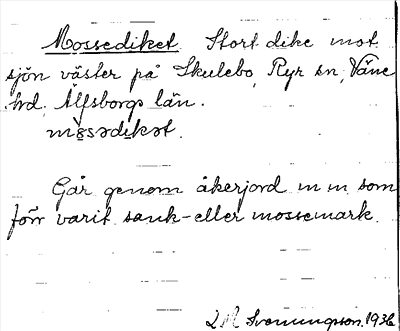 Mossediket. Stort dike mot
sjön väster på Skulebo, Ryr sn, Väne
hd, Älfsborgs län.
måsədikət.
Går genom åkerjord m m som
förr varit sank- eller mossemark.
Svenungsson. 1936